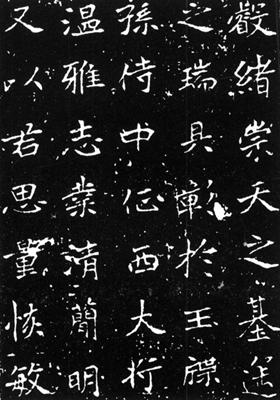 叡緒崇天之基
之瑞具彰於玉牒
孫侍中征西大行
温雅志業清簡明
又以君思量恢敏